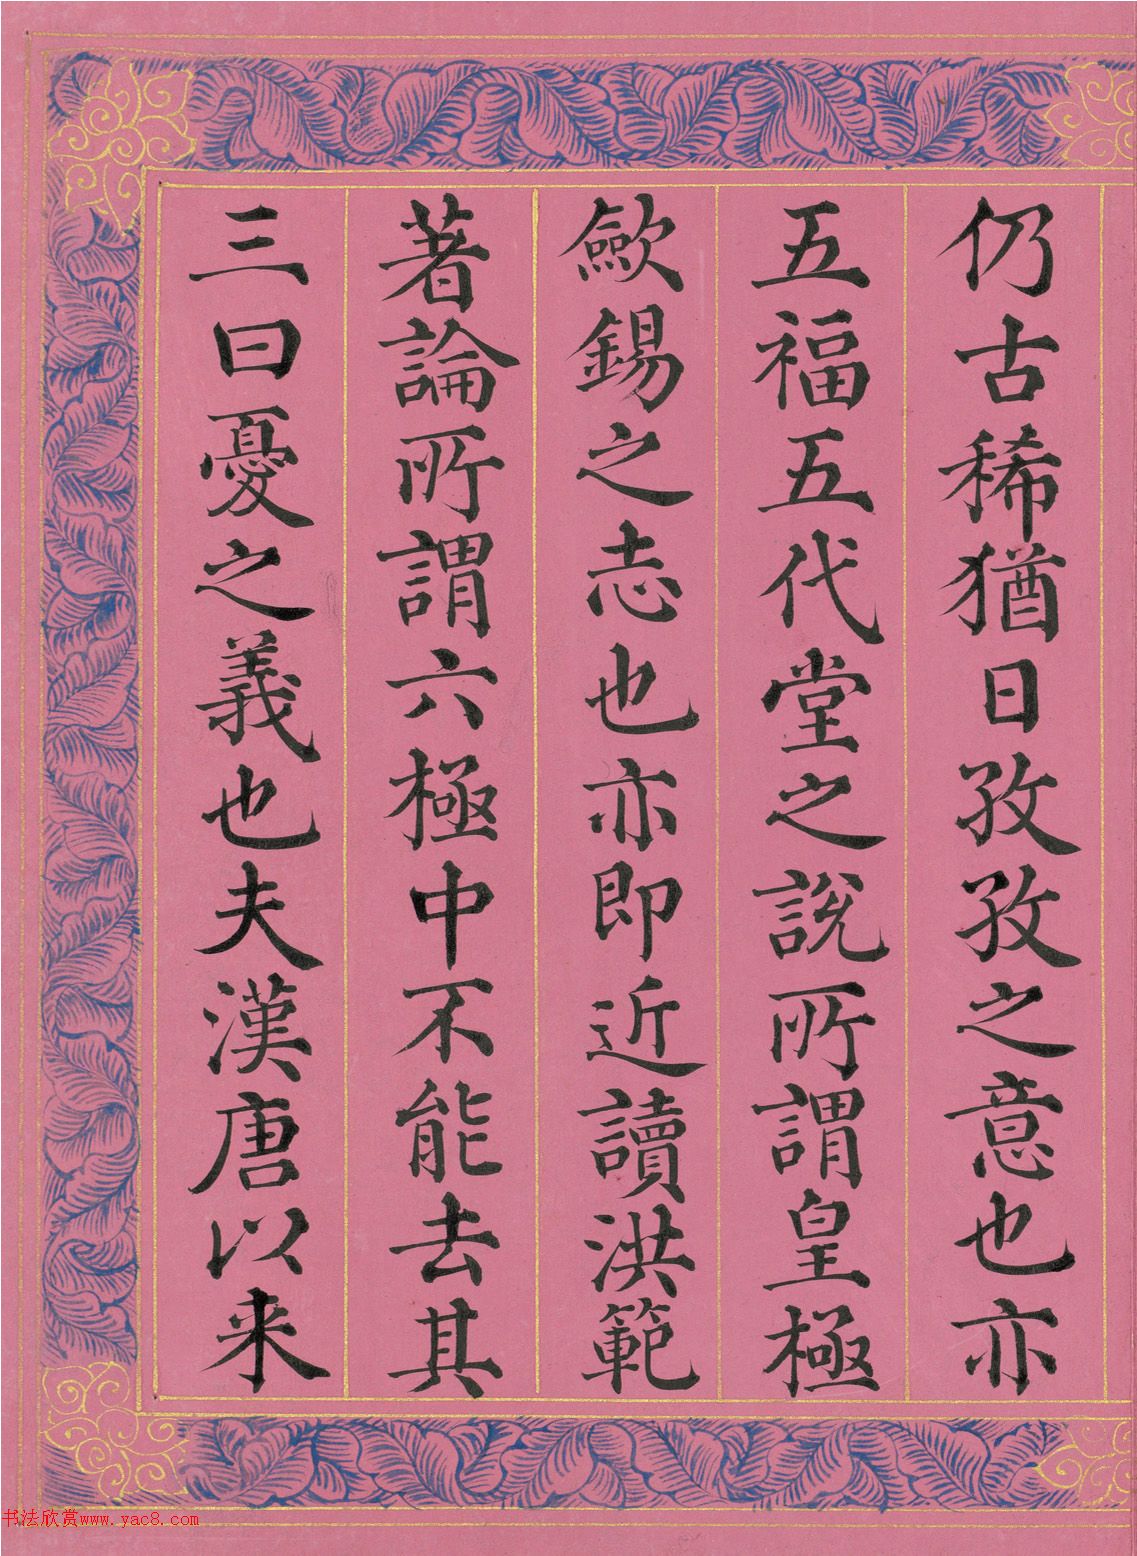 仍古稀猶日孜孜之意也亦
五福五代堂之說所謂皇極
歛錫之志也亦即近讀洪範
著論所謂六極中不能去其
三曰憂之義也夫漢唐以来
书法欣赏www.yac8.com